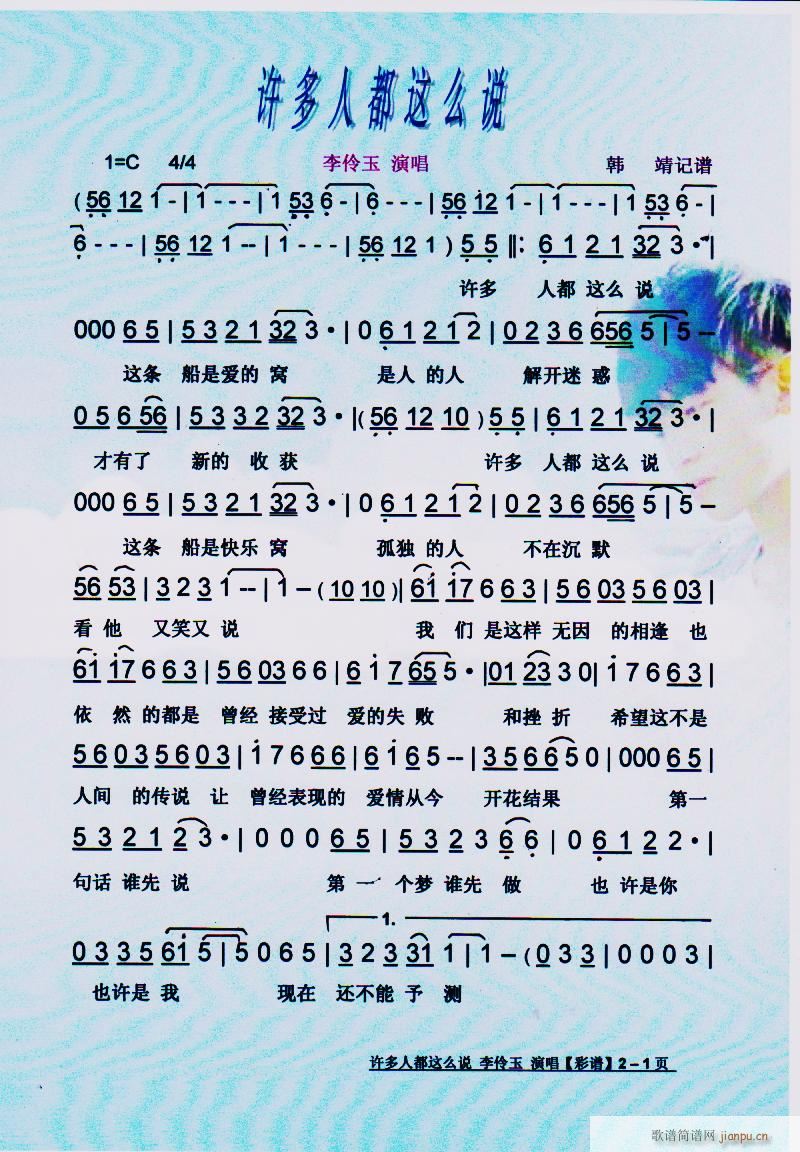 许多人都这么说
1=C 4/4 李伶玉 演唱 韩 靖记谱
( 56 12 1 - | 1 - - - | 1 53 6 - | 6 - - - | 56 12 1 - | 1 - - - | 1 53 6 - |
6 - - - | 56 12 1 -- | 1 - - - | 56 12 1 ) 5 5 ‖: 6 1 2 1 32 3 · |
许多 人都 这么 说
000 6 5 | 5 3 2 1 32 3 · | 0 6 1 2 1 2 | 0 2 3 6 656 5 | 5 –
这条 船是爱的 窝 是人 的人 解开迷 惑
0 5 6 56 | 5 3 3 2 32 3 · |( 56 12 10 ) 5 5 | 6 1 2 1 32 3 · |
才有了 新的 收 获 许多 人都 这么 说
000 6 5 | 5 3 2 1 32 3 · | 0 6 1 2 1 2 | 0 2 3 6 656 5 | 5 –
这条 船是快乐 窝 孤独 的人 不在沉 默
56 53 | 3 2 3 1 -- | 1 – ( 10 10 )| 61 17 6 6 3 | 5 6 03 5 6 03 |
看 他 又笑又 说 我 们 是这样 无因 的相逢 也
61 17 6 6 3 | 5 6 03 6 6 | 6 1 7 65 5 · |01 23 3 0| 1 7 6 6 3 |
依 然 的都是 曾经 接受过 爱的失 败 和挫 折 希望这不是
5 6 0 3 5 6 0 3 | 1 7 6 6 6 | 6 1 6 5 -- | 3 5 6 6 5 0 | 000 6 5 |
人间 的传说 让 曾经表现的 爱情从今 开花结果 第一
5 3 2 1 2 3 · | 0 0 0 6 5 | 5 3 2 3 6 6 | 0 6 1 2 2 · |
句话 谁先 说 第 一 个梦 谁先 做 也 许是你
1.
0 3 3 5 61 5 | 5 0 6 5 | 3 2 3 31 1 | 1 – ( 0 3 3 | 0 0 0 3 |
也许是 我 现在 还不能 予 测
许多人都这么说 李伶玉 演唱【彩谱】2 – 1 页
歌谱简谱网 jianpu.cn